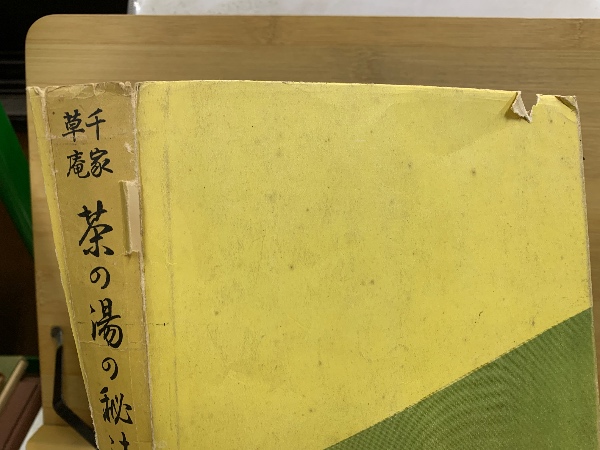 千家
草庵
茶の湯の秘